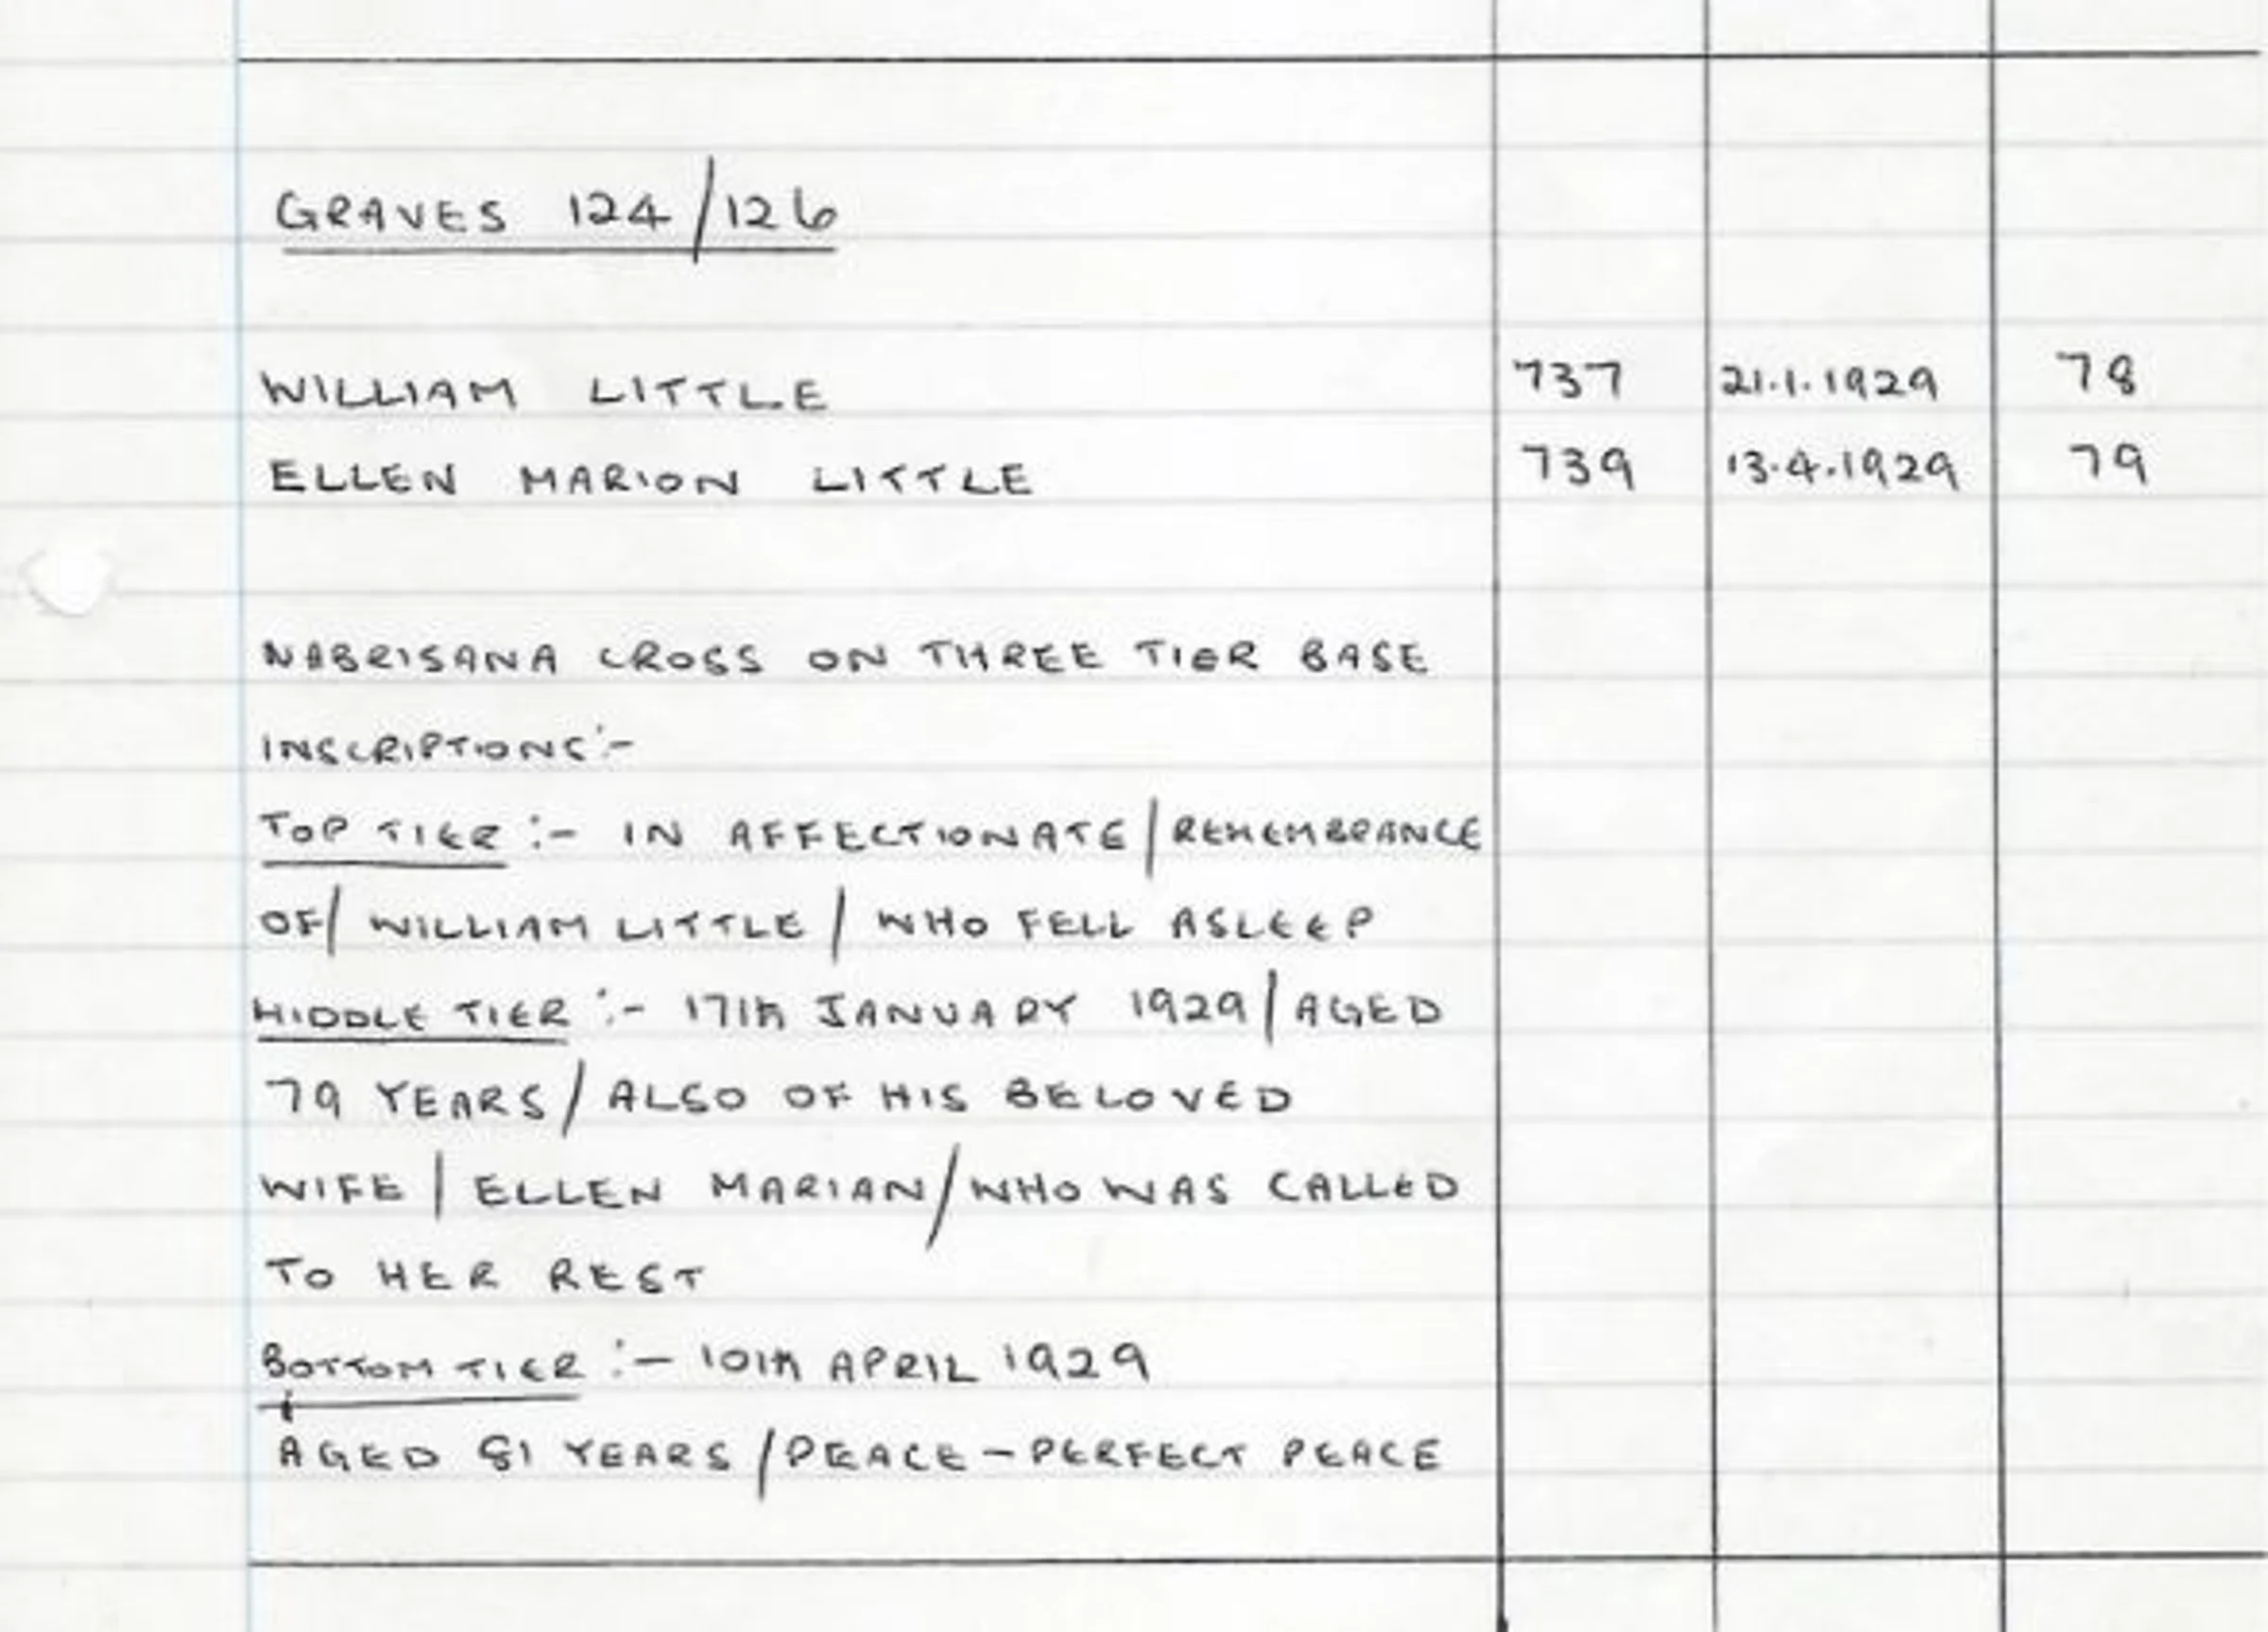 GRAVES 124/126
WILLIAM LITTLE 737 21.1.1929 78
ELLEN MARION LITTLE 739 13.4.1929 79
NABRISANA CROSS ON THREE TIER BASE
INSCRIPTIONS:-
TOP TIER :- IN AFFECTIONATE/REMEMBRANCE
OF/ WILLIAM LITTLE / WHO FELL ASLEEP
MIDDLE TIER :- 17th JANUARY 1929/AGED
79 YEARS/ ALSO OF HIS BELOVED
WIFE / ELLEN MARIAN/WHO WAS CALLED
TO HER REST
BOTTOM TIER :- 10th APRIL 1929
AGED 81 YEARS /PEACE-PERFECT PEACE